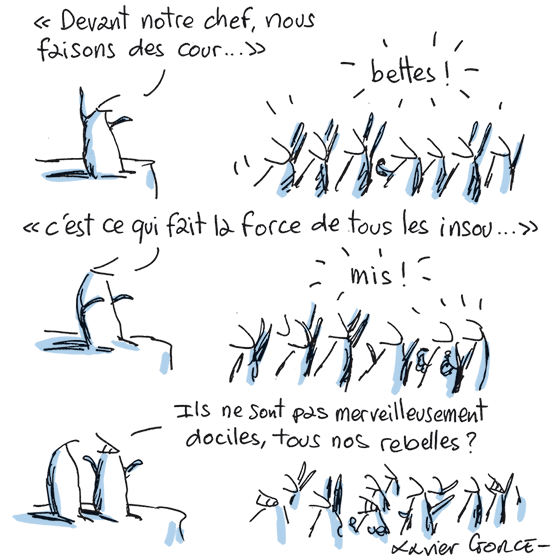 « Devant notre chef, nous
faisons des cour...»
bettes !
«c'est ce qui fait la force de tous les insou...»
mis !
Ils ne sont pas merveilleusement
dociles, tous nos rebelles ?
Xavier GORCE-